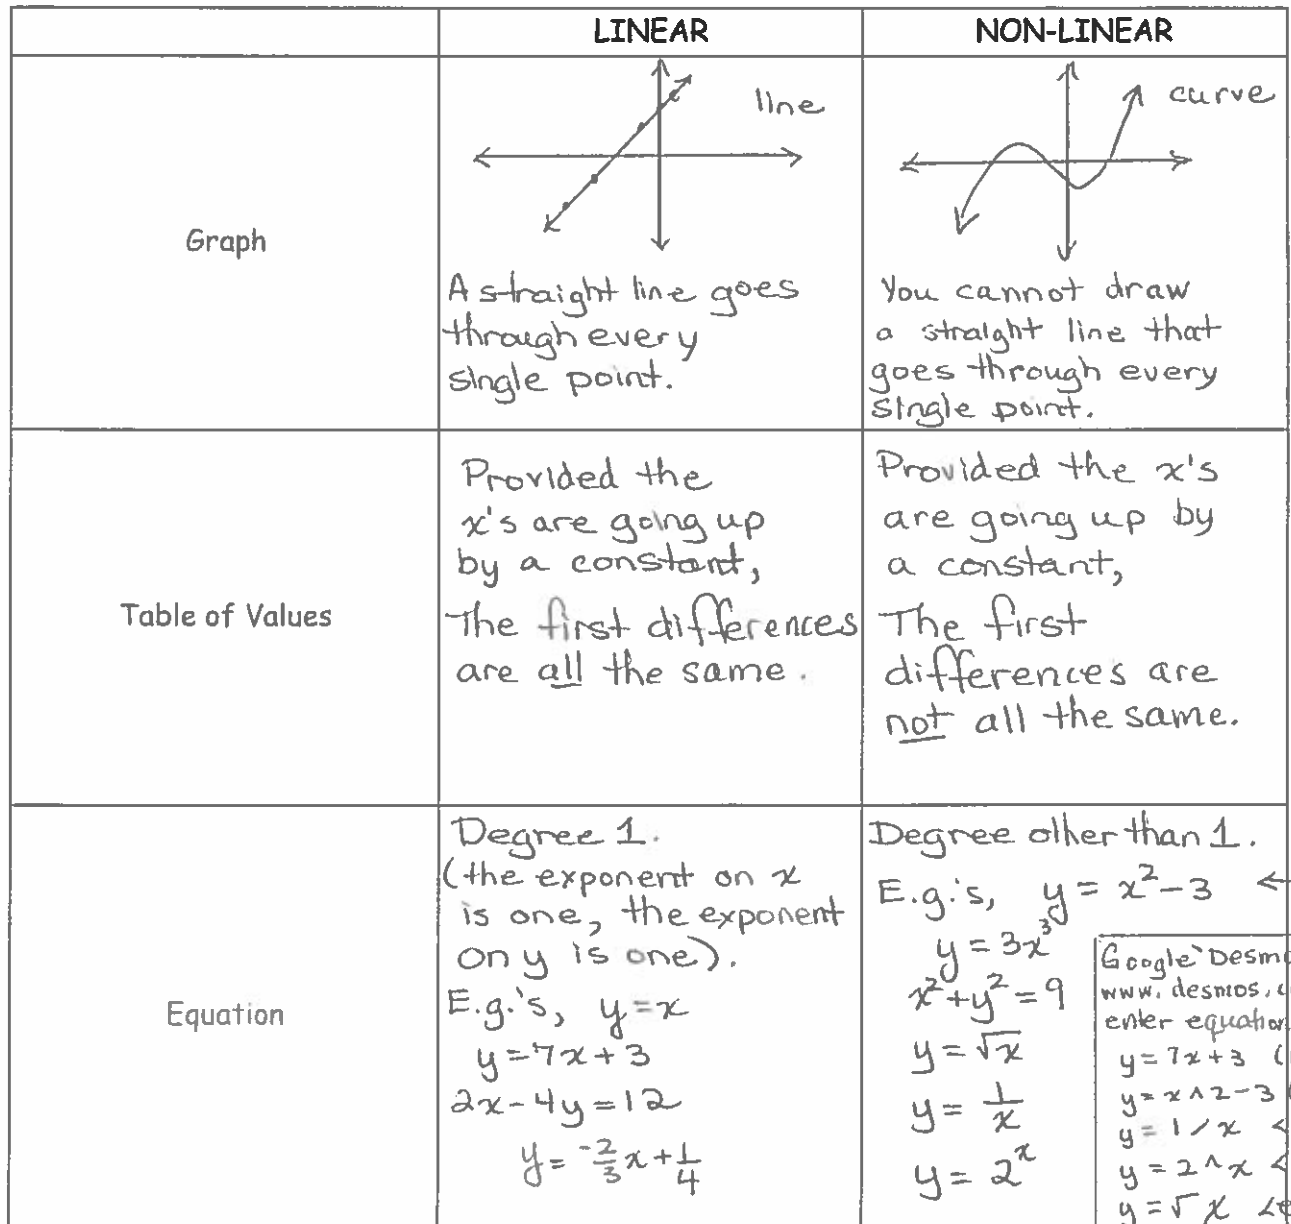 LINEAR
NON-LINEAR
Graph
line
A straight line goes
through every
single point.
curve
You cannot draw
a straight line that
goes through every
single point.
Table of Values
Provided the
x's are going up
by a constant,
The first differences
are all the same.
Provided the x's
are going up by
a constant,
The first
differences are
not all the same.
Equation
Degree 1.
(the exponent on x
is one, the exponent
on y is one).
E.g.'s, y=x
y=7x+3
2x-4y=12
y=-2/3x+1/4
Degree other than 1.
E.g.'s, y = x²-3 ←
y=3x³
x²+y²=9
y=√x
y= 1/x
y= 2ˣ
Google Desm
www.desmos.c
enter equation
y=7x+3 (
y=x^2-3
y=1/x <
y=2^x <
y=√x <e